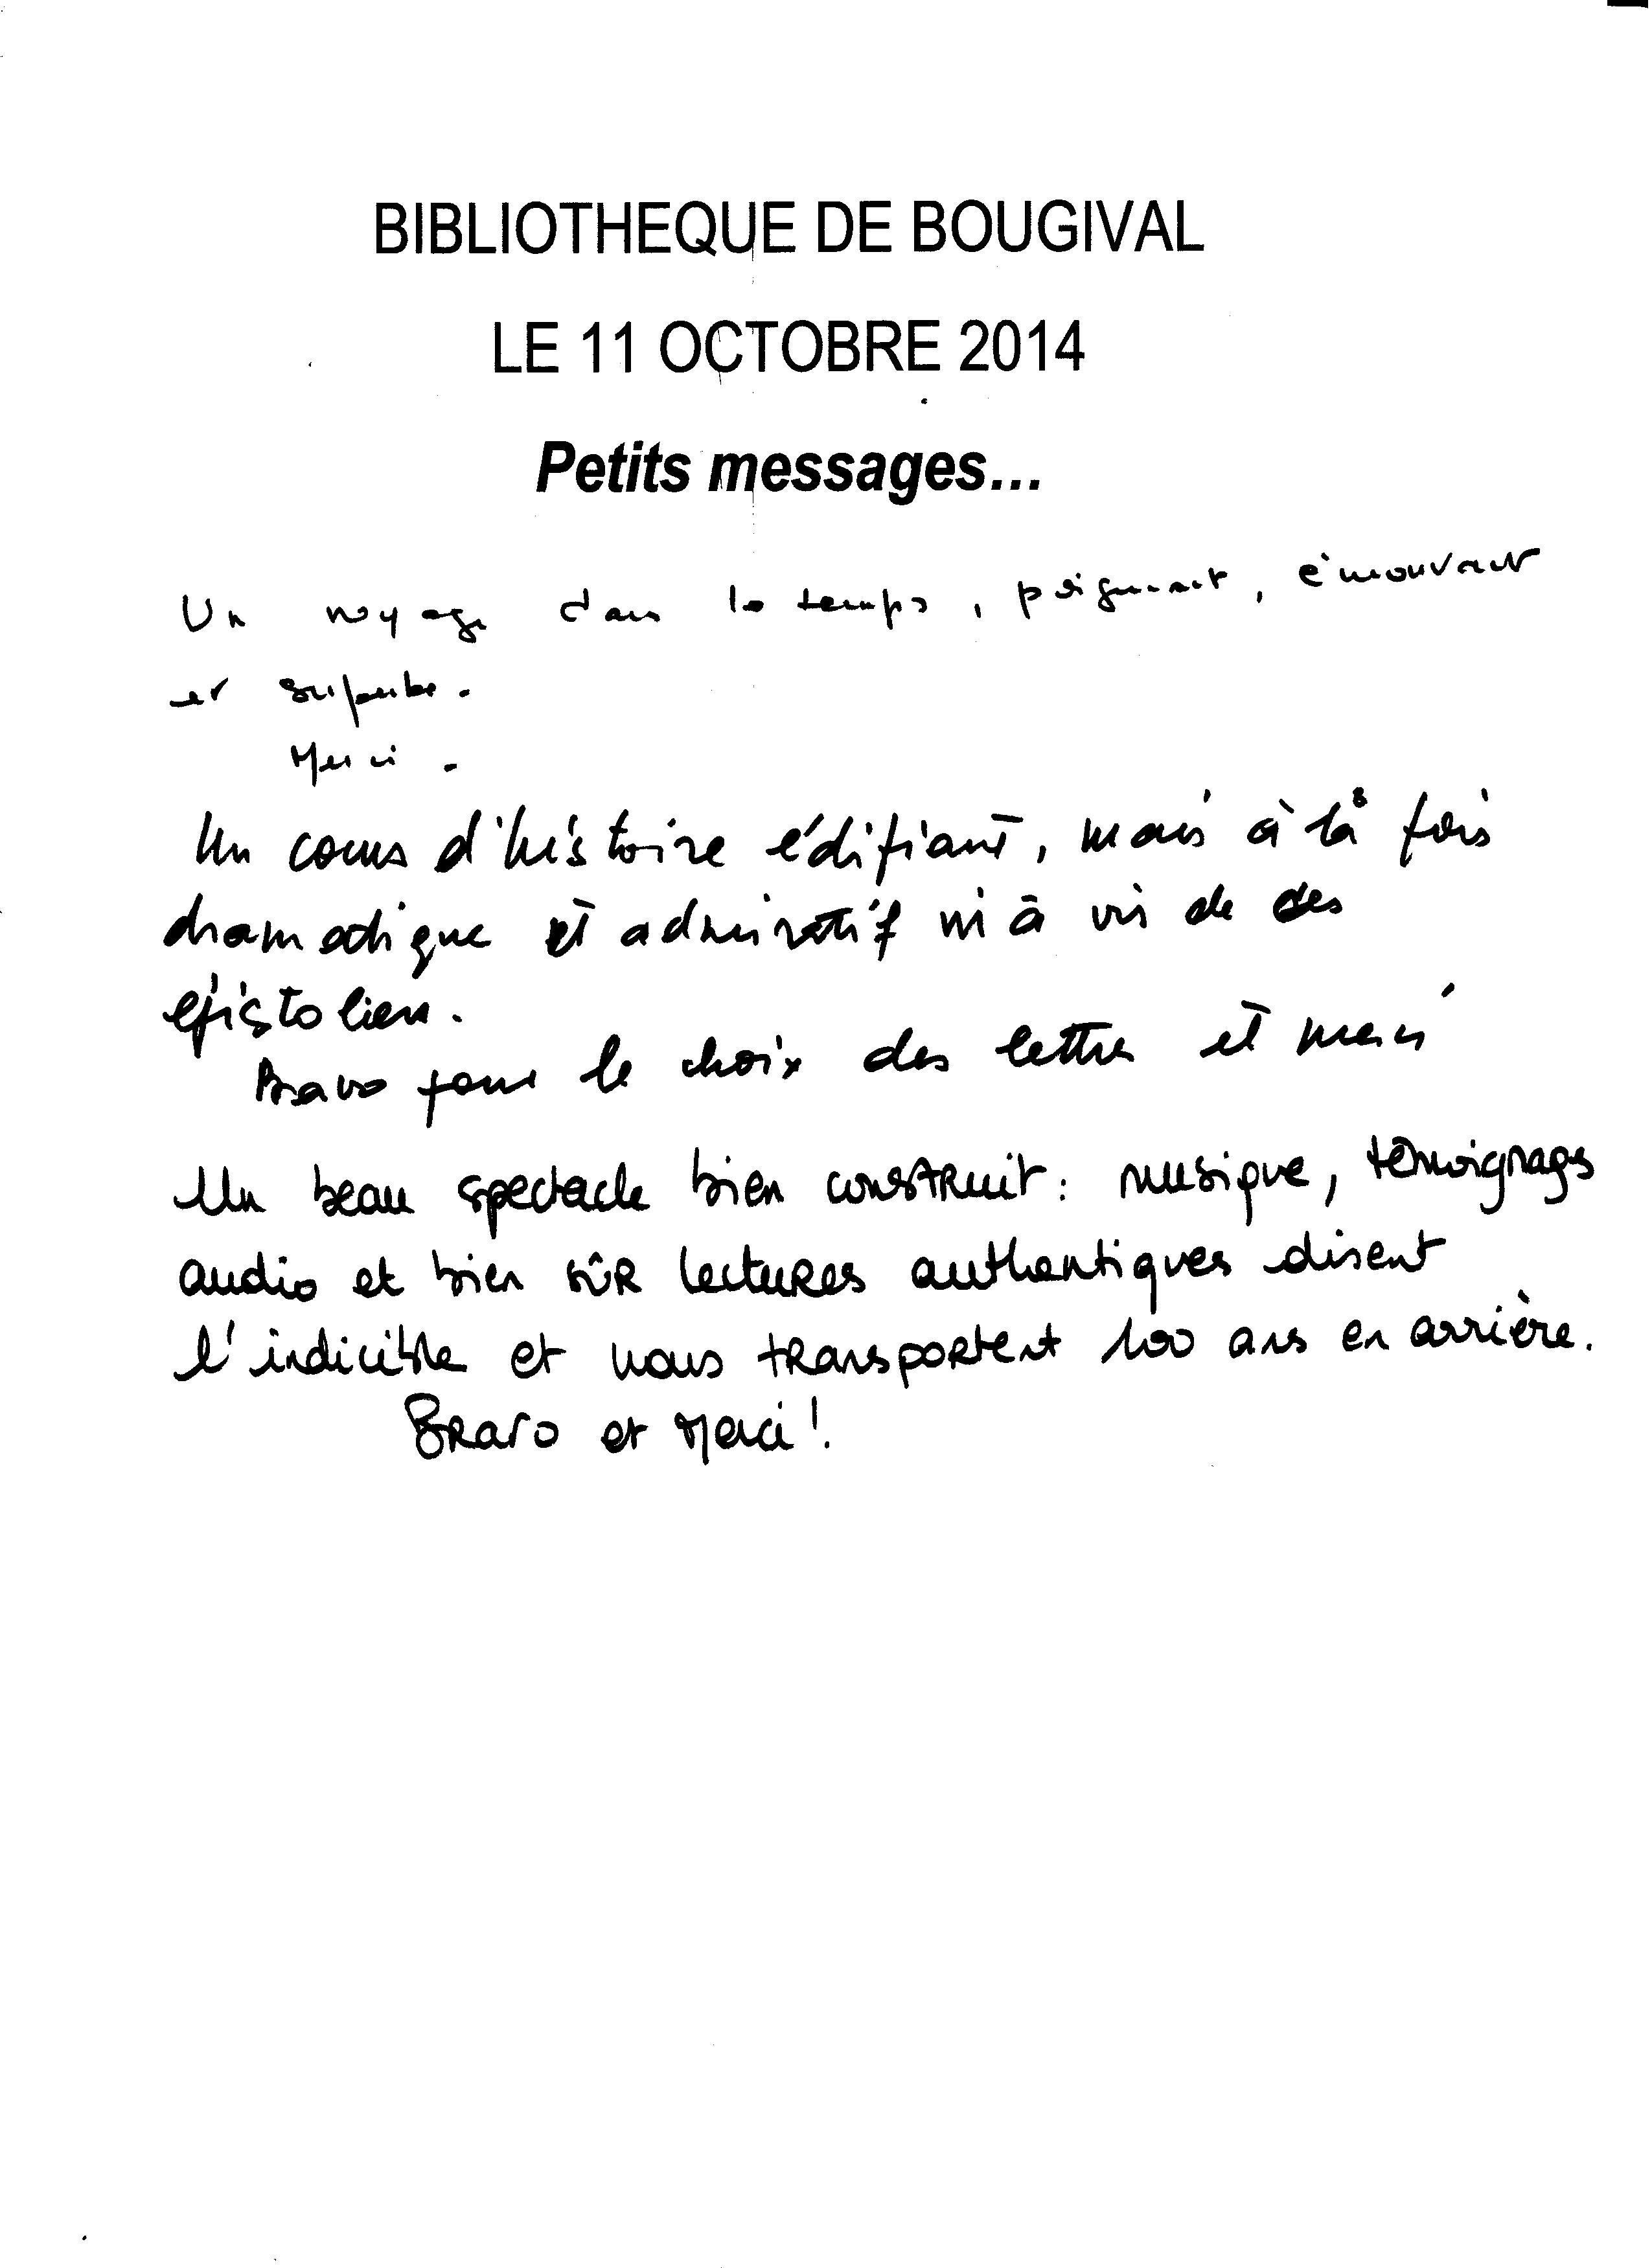 BIBLIOTHEQUE DE BOUGIVAL
LE 11 OCTOBRE 2014
Petits messages...
Un voyage dans le temps, poignant, émouvant
et superbe.
Merci.
Un cours d'histoire édifiant, mais à la fois
dramatique et admiratif vis à vis de des
épistoliers.
Bravo pour le choix des lettres et merci
Un beau spectacle bien construit : musique, témoignages
audio et bien sûr lectures authentiques disent
l'indicible et nous transportent 100 ans en arrière.
Bravo et Merci !